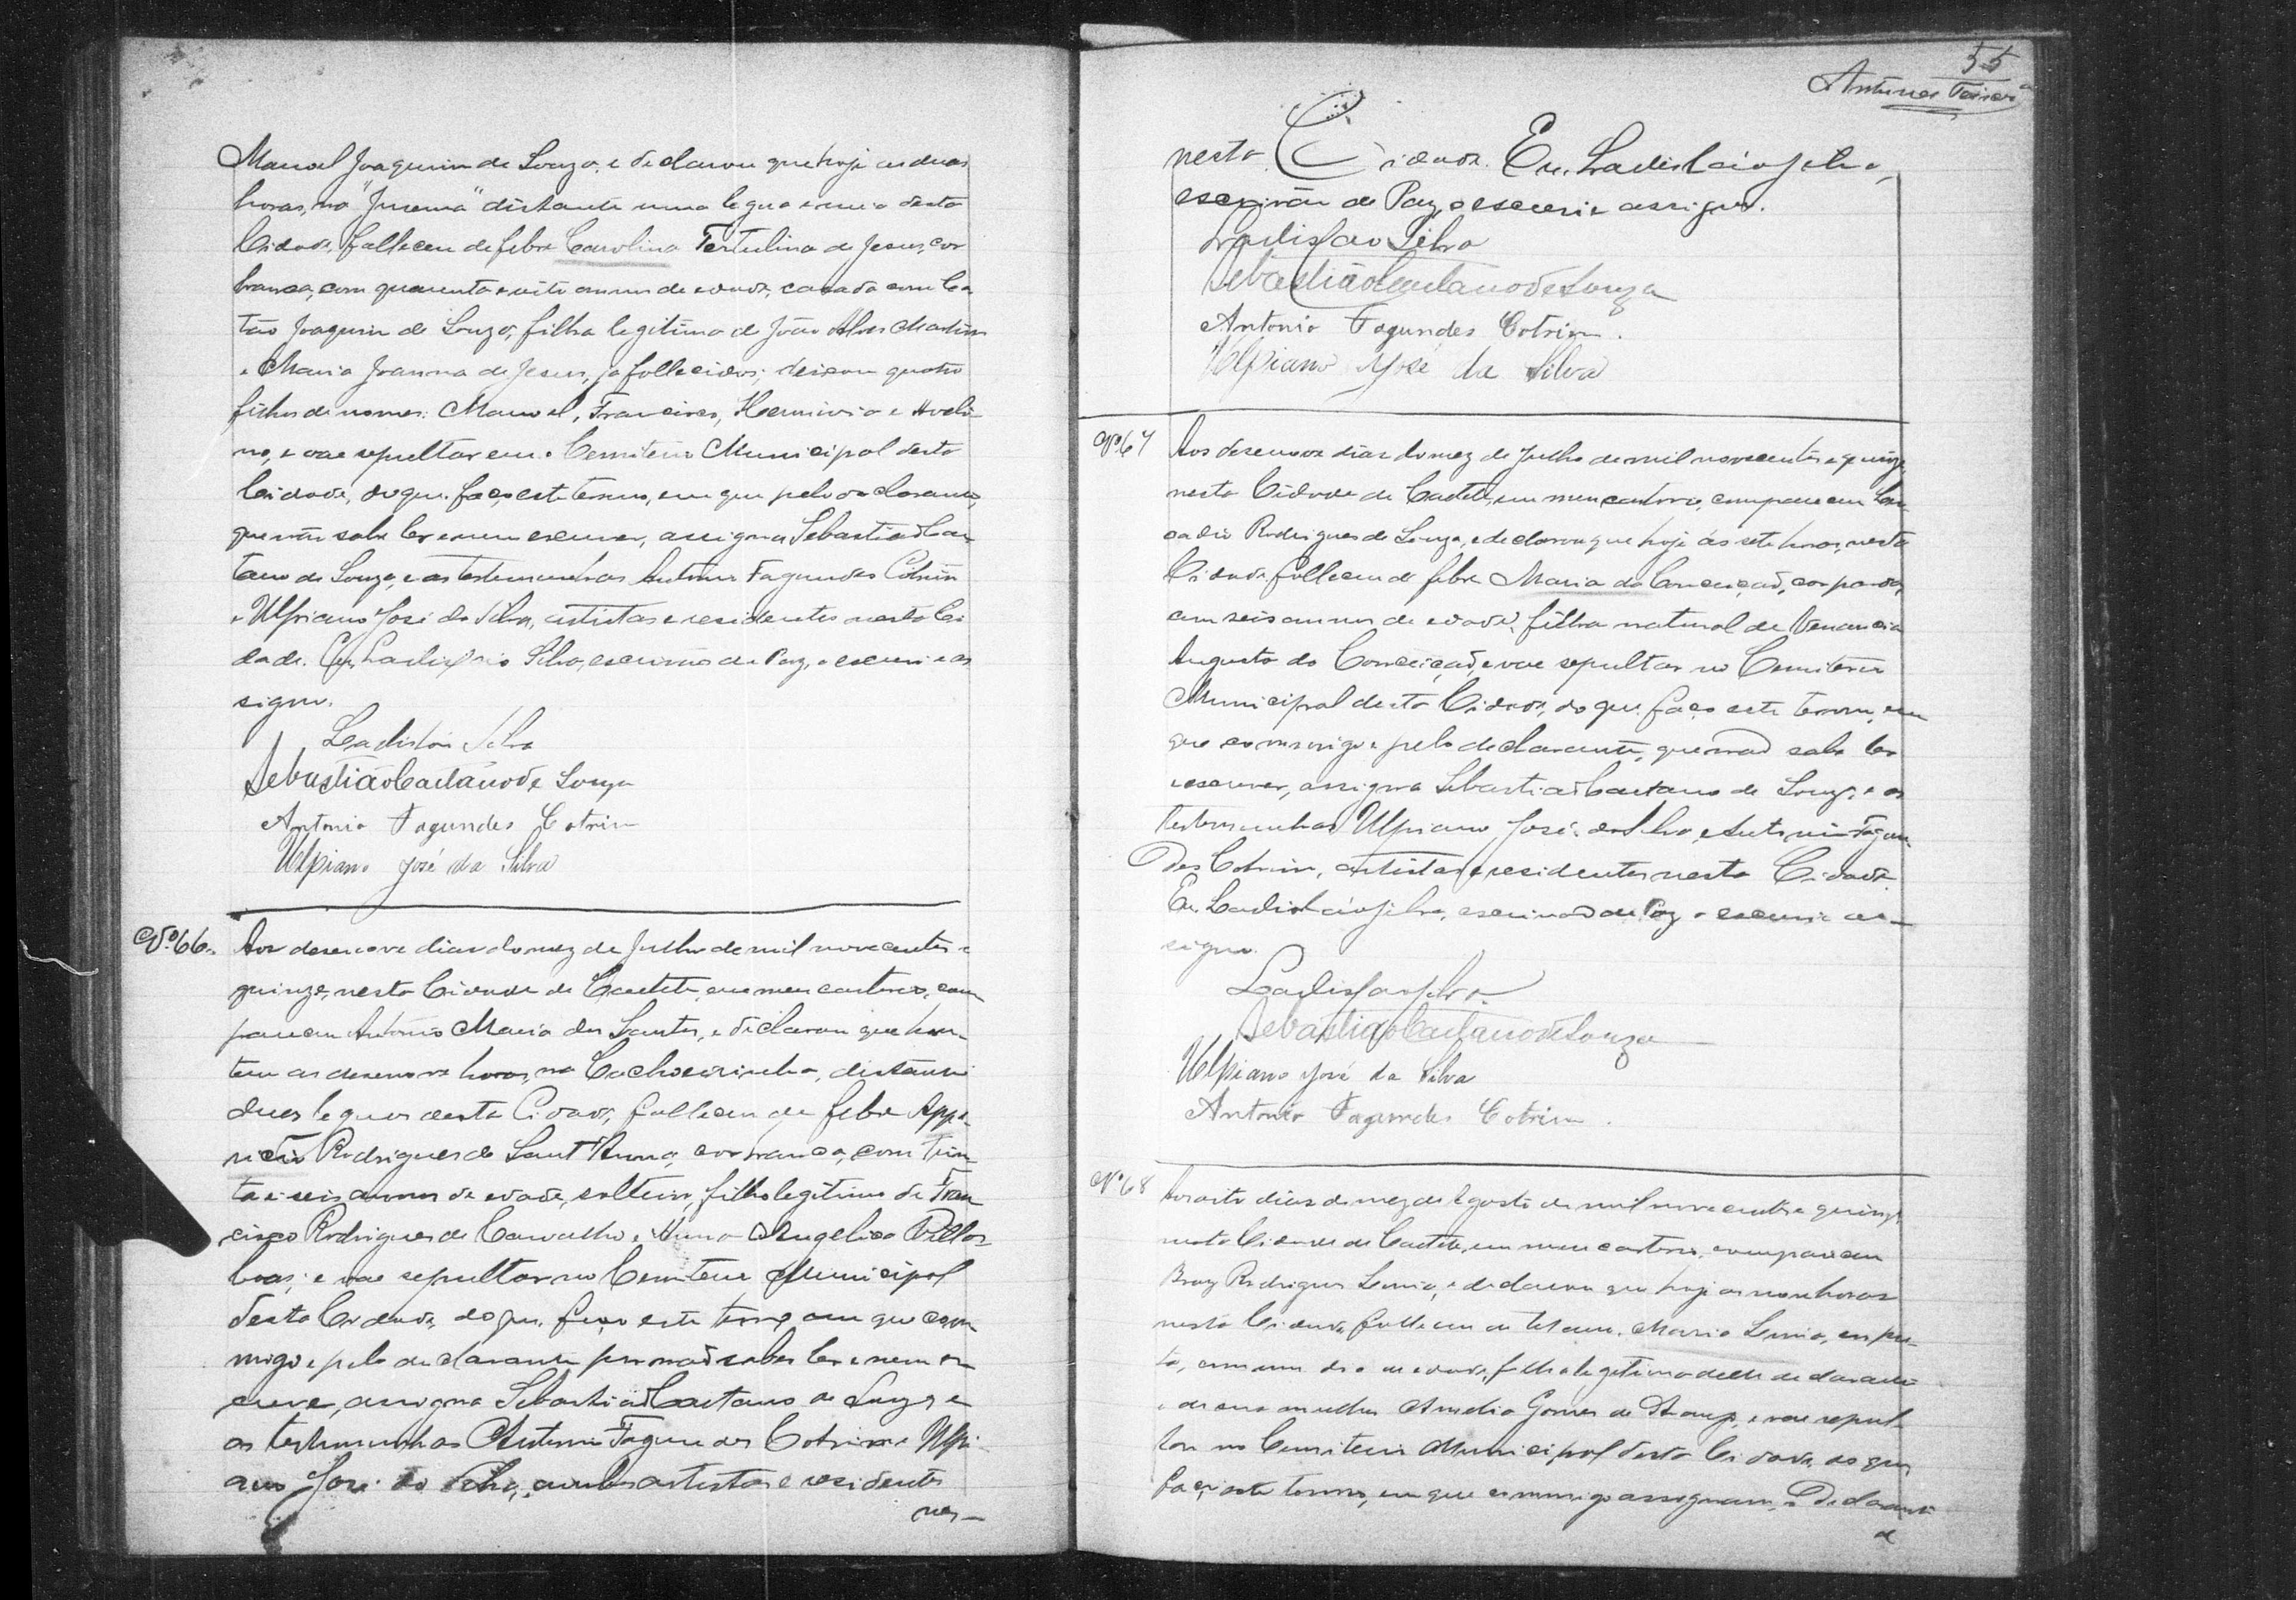 Manoel Joaquim de Souza, e declarou que hoje as duas
horas, na "Jurema" distante uma legua e meia desta
Cidade, falleceu de febre Carolina Tertulina de Jesus, cor
branca, com quarenta e oito annos de edade, casada com Ca
tão Joaquim de Souza, filha legitima de João Alves Martins
e Maria Joanna de Jesus, ja fallecidos; deixou quatro
filhos de nomes: Manoel, Francisca, Herminia e Aveli-
no, e vae sepultar em o Cemiterio Municipal desta
Cidade, do que faço este termo, em que pelo declarante,
que não sabe ler e nem escrever, assigna Sebastião Cae
tano de Souza, e as testemunhas Antonio Fagundes Cotrim
e Ulpiano José da Silva, artistas e residentes nesta Ci
dade. Eu, Ladisláo Silva, escrivão de Paz, o escrevi e as
signo.
Ladisláo Silva
Sebastião Caetano de Souza
Antonio Fagundes Cotrim
Ulpiano José da Silva
Nº 66. Aos desenove dias do mez de Julho de mil novecentos e
quinze, nesta Cidade de Caetité, em meu cartorio, com
pareceu Antonio Maria dos Santos, e declarou que hon-
tem as desenove horas, na Cachoeirinha, distante
duas leguas desta Cidade, falleceu de febre Appa-
ricio Rodrigues de Sant'Anna, cor branca, com trin-
ta e seis annos de edade, solteiro, filho legitimo de Fran
cisco Rodrigues de Carvalho e Anna Angelica Villas
boas; e vae sepultar no Cemiterio Municipal
desta Cidade, do que faço este termo, em que com
migo e pelo declarante por não saber ler e nem es
crever, assigna Sebastião Caetano de Souza e
as testemunhas Antonio Fagundes Cotrim e Ulpi
ano José da Silva, ambos artistas e residentes
nes-
55
Antunes Teixeira
nesta Cidade. Eu, Ladisláo Silva,
escrivão de Paz, o escrevi e assigno.
Ladislao Silva
Sebastião Caetano de Souza
Antonio Fagundes Cotrim.
Ulpiano José da Silva
Nº 67 Aos desenove dias do mez de Julho de mil novecentos e quinze,
nesta Cidade de Caetité, em meu cartorio, compareceu Leo
cadio Rodrigues de Souza, e declarou que hoje ás sete horas, nesta
Cidade falleceu de febre Maria da Conceição, cor parda,
com seis annos de edade, filha natural de Venancia
Augusta da Conceição, e vae sepultar no Cemiterio
Municipal desta Cidade, do que faço este termo, em
que commigo e pelo declarante, que não sabe ler
e escrever, assigna Sebastião Caetano de Souza, e as
testemunhas Ulpiano José da Silva e Antonio Fagun
des Cotrim, artistas e residentes nesta Cidade.
Eu, Ladisláo Silva, escrivão de Paz o escrevi e as-
signo.
Ladislao Silva
Sebastião Caetano de Souza
Ulpiano José da Silva
Antonio Fagundes Cotrim.
Nº 68 Aos oito dias do mez de Agosto de mil novecentos e quinze
nesta Cidade de Caetité, em meu cartorio, compareceu
Braz Rodrigues Lima, e declarou que hoje as nove horas
nesta Cidade falleceu de tetano Maria Lima, cor pre-
ta, com um dia de edade, filha legitima delle declarante
e de sua mulher Amelia Gomes de Araujo, e vae sepul
tar no Cemiterio Municipal desta Cidade, do que
faço este termo, em que commigo assignam, o declarante
e